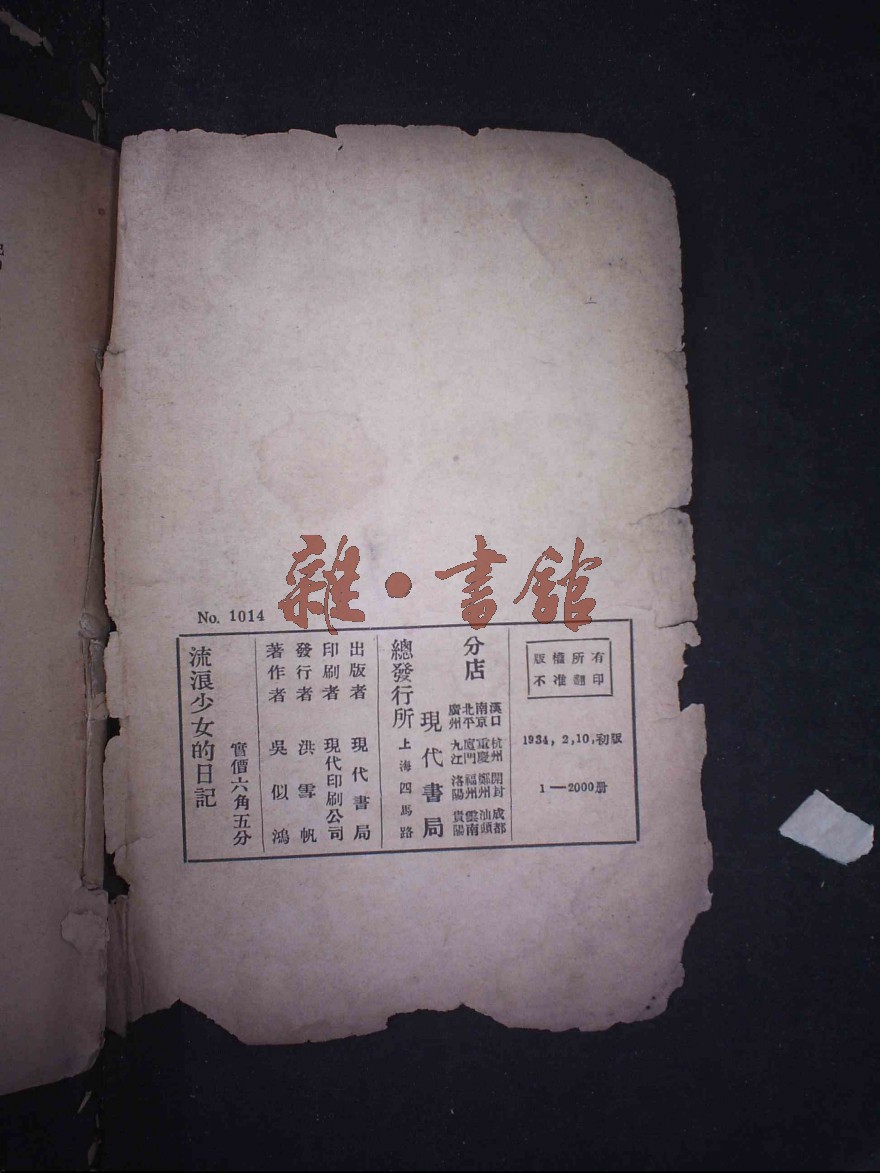 雜·書館
No. 1014
版權所有
不准翻印
1934, 2, 10, 初版
1—2000册
分店
漢口 杭州 開封 成都
南京 重慶 鄭州 汕頭
北平 廈門 福州 雲南
廣州 九江 洛陽 貴陽
現代書局
總發行所 上海四馬路
出版者 現代書局
印刷者 現代印刷公司
發行者 洪雪帆
著作者 吳似鴻
實價六角五分
流浪少女的日記